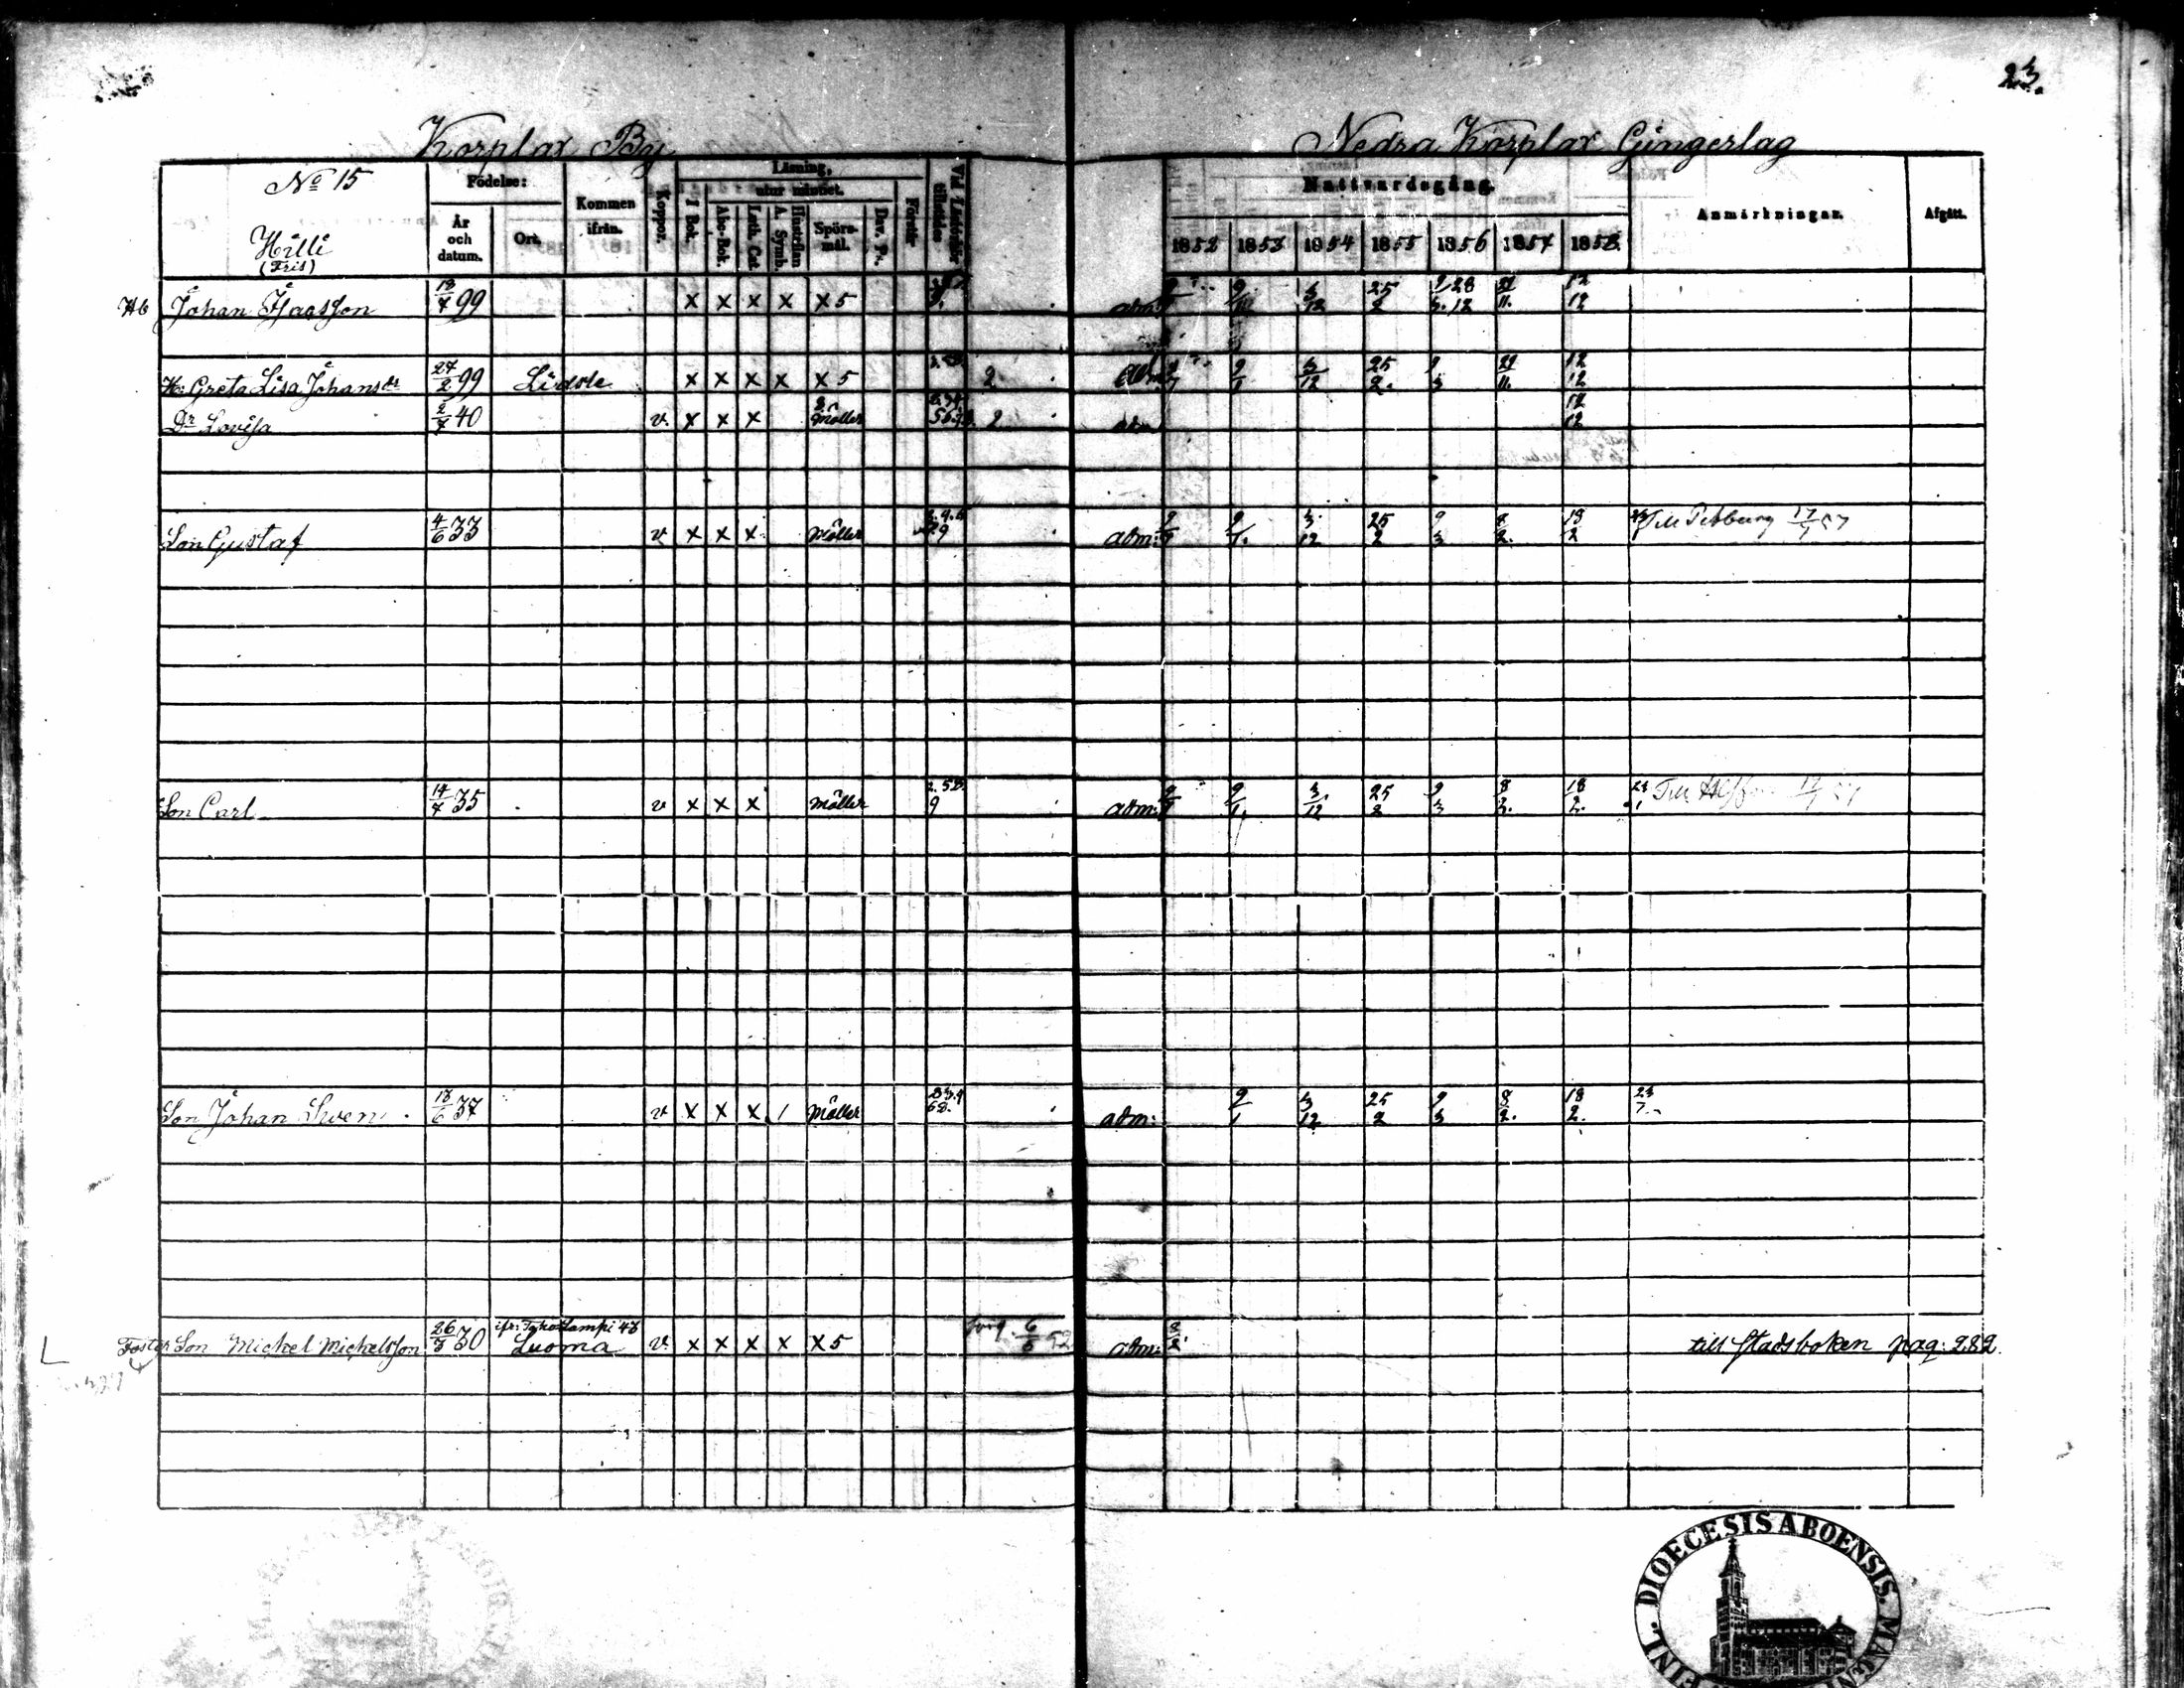 23.
Korplax By
Nedra Korplax Gingerlag
No 15
Hilli
(Fris)
Födelse:
År och datum.
Ort.
Kommen ifrån.
Koppor.
Läsning,
I Bok.
utur minnet.
Abc-Bok.
Luth. Cat.
Hustaflan A. Symb.
Spörsmål.
Dav. Ps.
Förstår
Vid Läsförhör tillstädes
Nattvardsgång.
1852 1853 1854 1855 1856 1857 1858
Anmärkningar.
Afgått.
Johan Isacsson 18/7 99 x x x x x 5 adm: 3/12 25/2 12/12
H: Greta Lisa Johansdr 27/2 99 Lidsle x x x x x 5 2 9/1 3/12 25/2 9/3 12/12
Dr Lovisa 2/7 40 v. x x x Möller 2 adm 12/12
Son Gustaf 4/6 33 v x x x Möller adm: 9/1 3/12 25/2 9/3 8/2 18/2 Till Petburg 17/7 57
Son Carl 14/7 35 v x x x Möller 9 adm: 9/1 3/12 25/2 9/3 8/2 18/2 Till
Son Johan Sven 18/6 37 v x x x / Möller adm: 9/1 3/12 25/2 9/3 8/2 18/2 23/7
Foster Son Michel Michelsson 26/3 30 Luoma v. x x x x x 5 adm: till stadsboken pag: 282
DIOECESIS ABOENSIS.